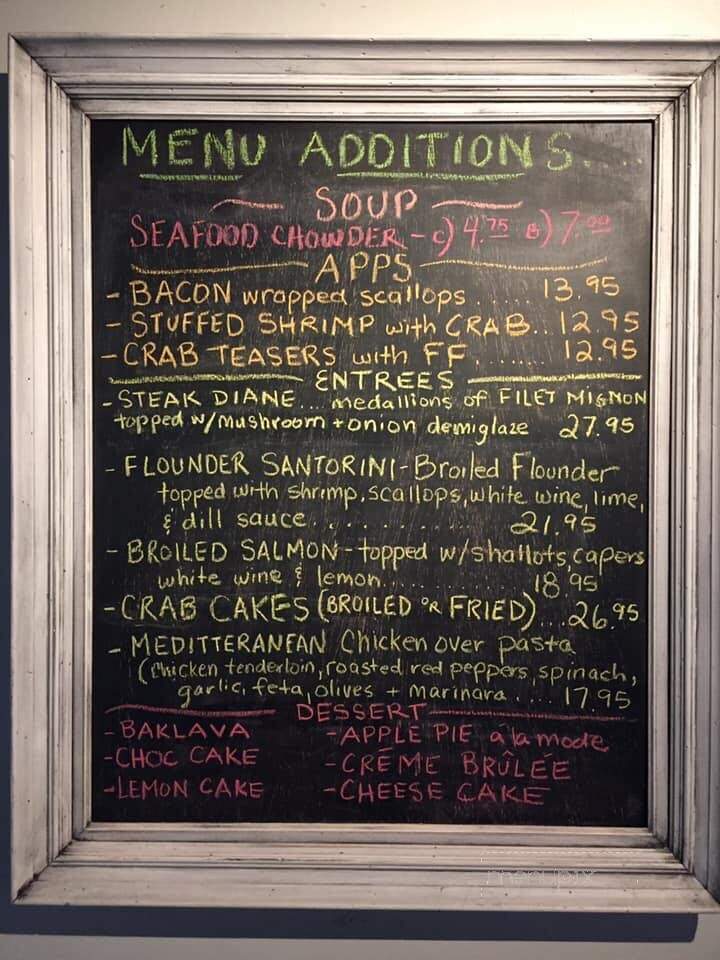 MENU ADDITIONS...
SOUP
SEAFOOD CHOWDER - C) 4.75 B) 7.00
APPS
- BACON wrapped scallops ...... 13.95
- STUFFED SHRIMP with CRAB.. 12.95
- CRAB TEASERS with FF ....... 12.95
ENTREES
- STEAK DIANE... medallions of FILET MIGNON
topped w/mushroom + onion demiglaze 27.95
- FLOUNDER SANTORINI - Broiled Flounder
topped with shrimp, scallops, white wine, lime,
& dill sauce............ 21.95
- BROILED SALMON - topped w/shallots, capers
white wine & lemon......... 18.95
- CRAB CAKES (BROILED OR FRIED)...26.95
- MEDITTERANEAN Chicken over pasta
(Chicken tenderloin, roasted red peppers, spinach,
garlic, feta, olives + marinara .... 17.95
DESSERT
- BAKLAVA - APPLE PIE á la mode
- CHOC CAKE - CRÉME BRÛLÉE
- LEMON CAKE - CHEESE CAKE
menupix